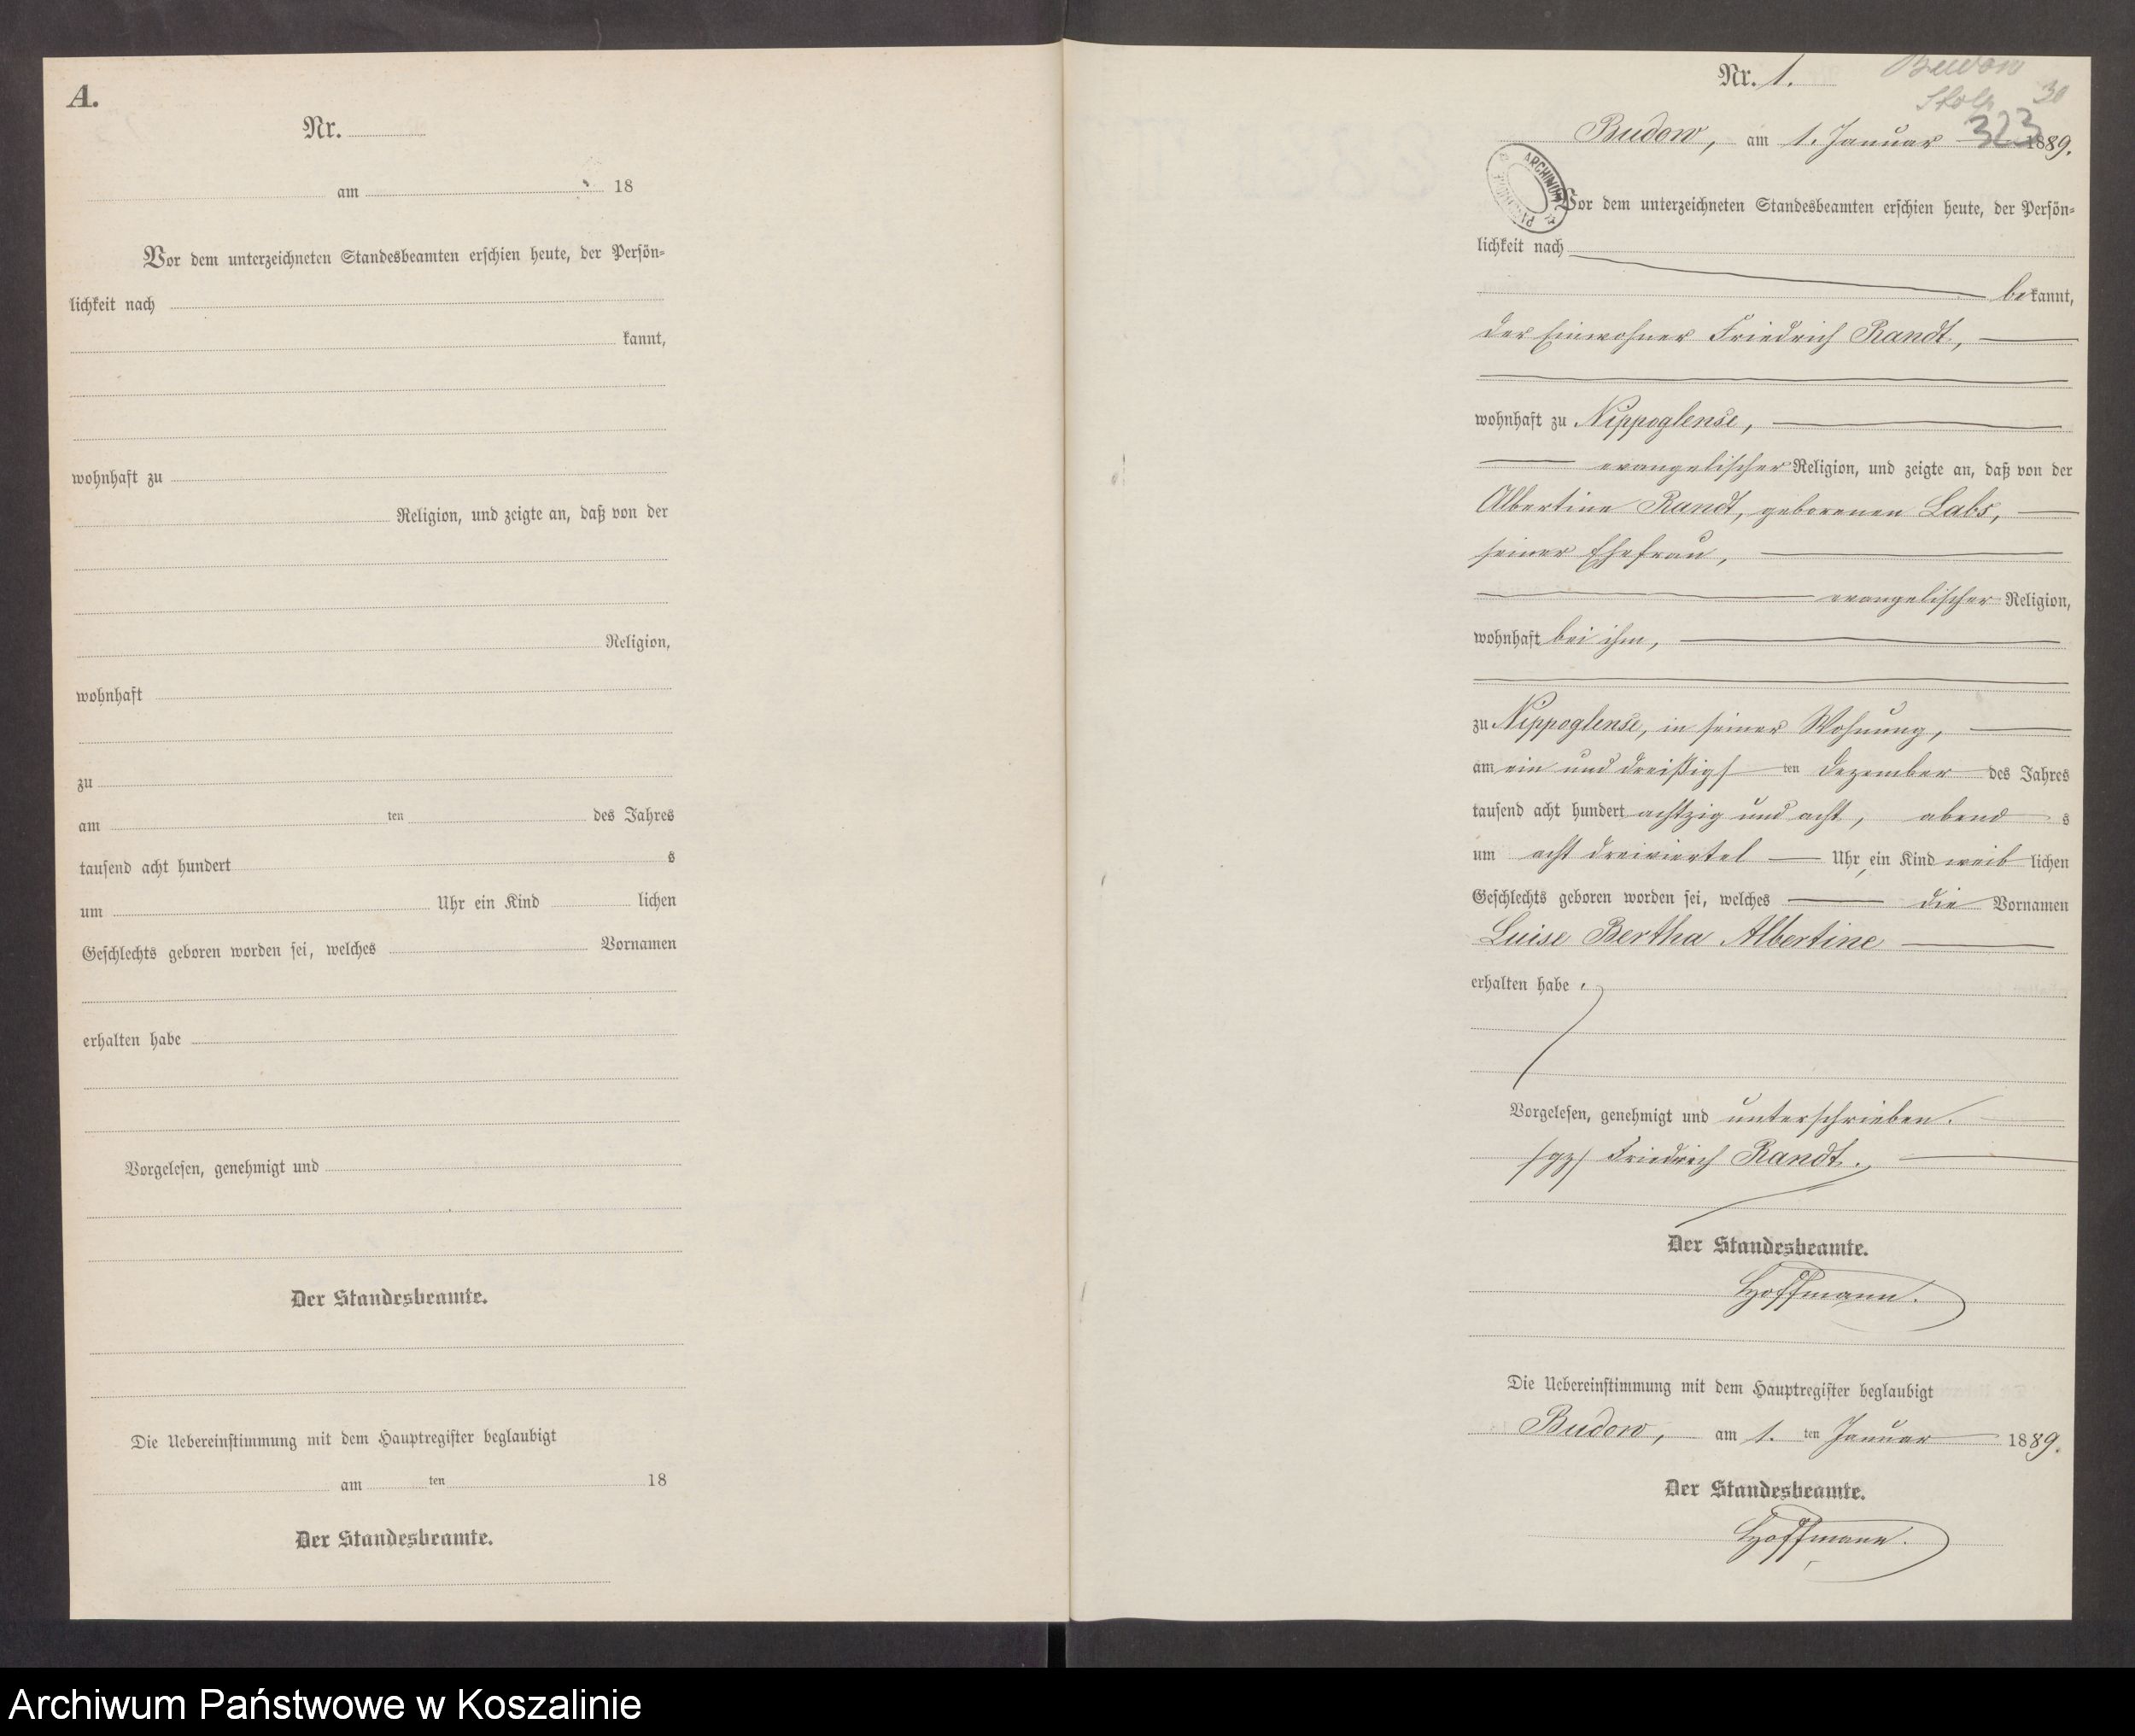 A.
Nr.
am 18
Vor dem unterzeichneten Standesbeamten erschien heute, der Persön-
lichkeit nach
kannt,
wohnhaft zu
Religion, und zeigte an, daß von der
Religion,
wohnhaft
zu
am ten des Jahres
tausend acht hundert s
um Uhr ein Kind lichen
Geschlechts geboren worden sei, welches Vornamen
erhalten habe
Vorgelesen, genehmigt und
Der Standesbeamte.
Die Uebereinstimmung mit dem Hauptregister beglaubigt
am ten 18
Der Standesbeamte.
Nr. 1.
Budow
Stolp 30
323
Budow, am 1. Januar 1889.
ARCHIWUM
Vor dem unterzeichneten Standesbeamten erschien heute, der Persön-
lichkeit nach
bekannt,
der Einwohner Friedrich Randt,
wohnhaft zu Nippoglense,
evangelischer Religion, und zeigte an, daß von der
Albertine Randt, geborenen Labs,
seiner Ehefrau,
evangelischer Religion,
wohnhaft bei ihm,
zu Nippoglense, in seiner Wohnung,
am ein und dreißigsten Dezember des Jahres
tausend acht hundert achtzig und acht, abends
um acht dreiviertel Uhr, ein Kind weiblichen
Geschlechts geboren worden sei, welches die Vornamen
Luise Bertha Albertine
erhalten habe.
Vorgelesen, genehmigt und unterschrieben.
/gz/ Friedrich Randt.
Der Standesbeamte.
Hoffmann.
Die Uebereinstimmung mit dem Hauptregister beglaubigt
Budow, am 1. ten Januar 1889.
Der Standesbeamte.
Hoffmann.
Archiwum Państwowe w Koszalinie